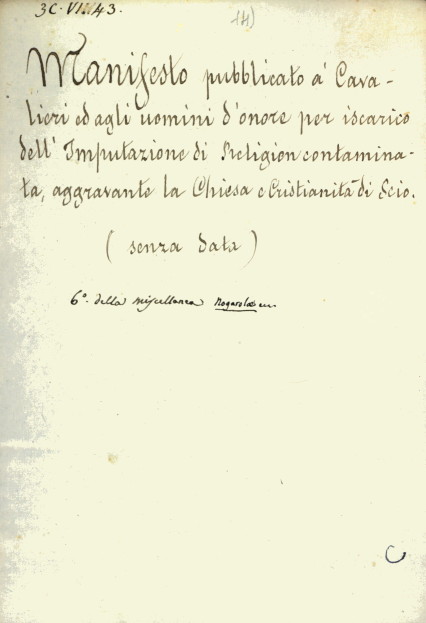 3C. VI. 43.
14)
Manifesto pubblicato a' Cava-
lieri ed agli uomini d'onore per iscarico
dell' Imputazione di Religion contamina-
ta, aggravante la Chiesa e Cristianità di Scio.
( senza data )
6°. della miscellanea
C